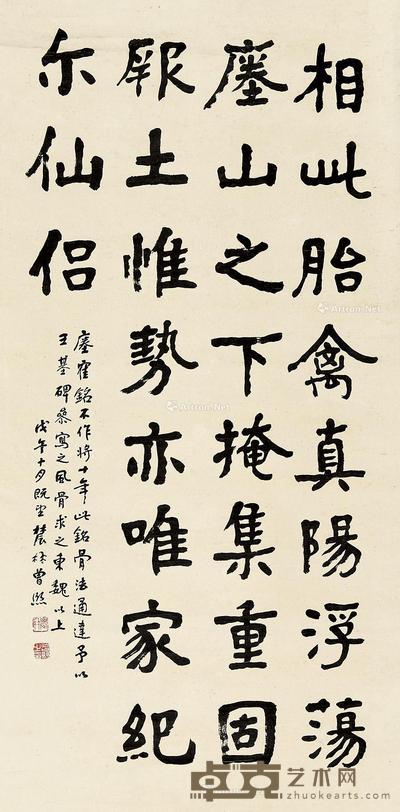 相此胎禽真陽浮蕩
㢓山之下掩集重固
厥土惟勢亦唯家紀
尓仙侣
㢓雀銘不作將十年此銘骨法通達予以
王基碑參寫之風骨求之東魏以上
戊午十月既望農髯曾熙
Artron.Net
Artron.Net
卓克艺术网
zhuokearts.com